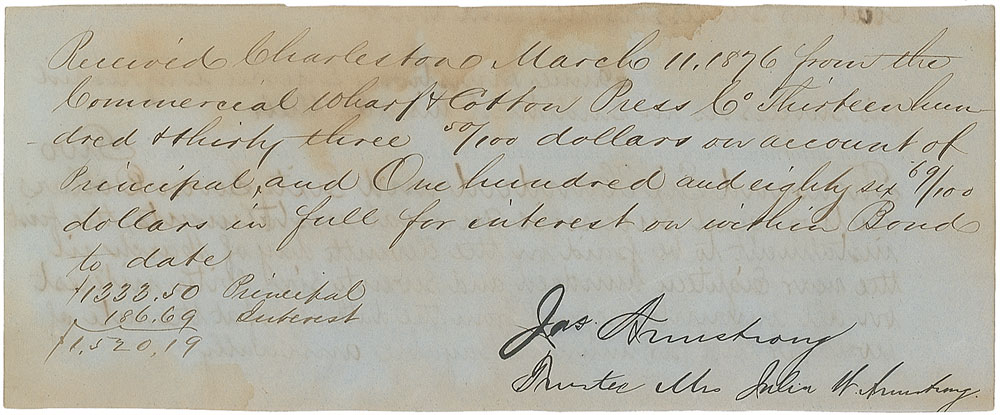 Received Charleston March 11, 1876 from the
Commercial Wharf & Cotton Press Co Thirteen hun-
dred & thirty three 50/100 dollars on account of
Principal, and One hundred and eighty six 69/100
dollars in full for interest on within Bond
to date
$1333.50 Principal
186.69 Interest
$1,520,19
Jas. Armstrong
Trustee Mrs Julia W. Armstrong.